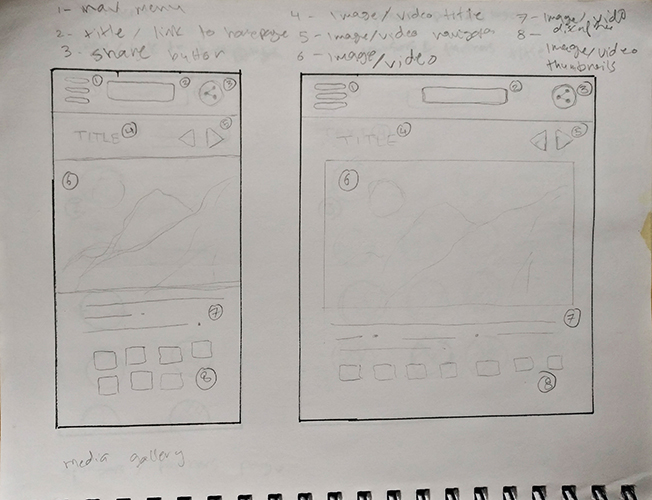 1- nav menu
2- title / link to homepage
3. share button
4 - image/video title
5- image/video navigator
6 - image/video
7 - image/video
8 -
image/video
thumbnails
1
2
3
TITLE 4
5
6
7
8
1
2
3
TITLE 4
5
6
7
8
media gallery